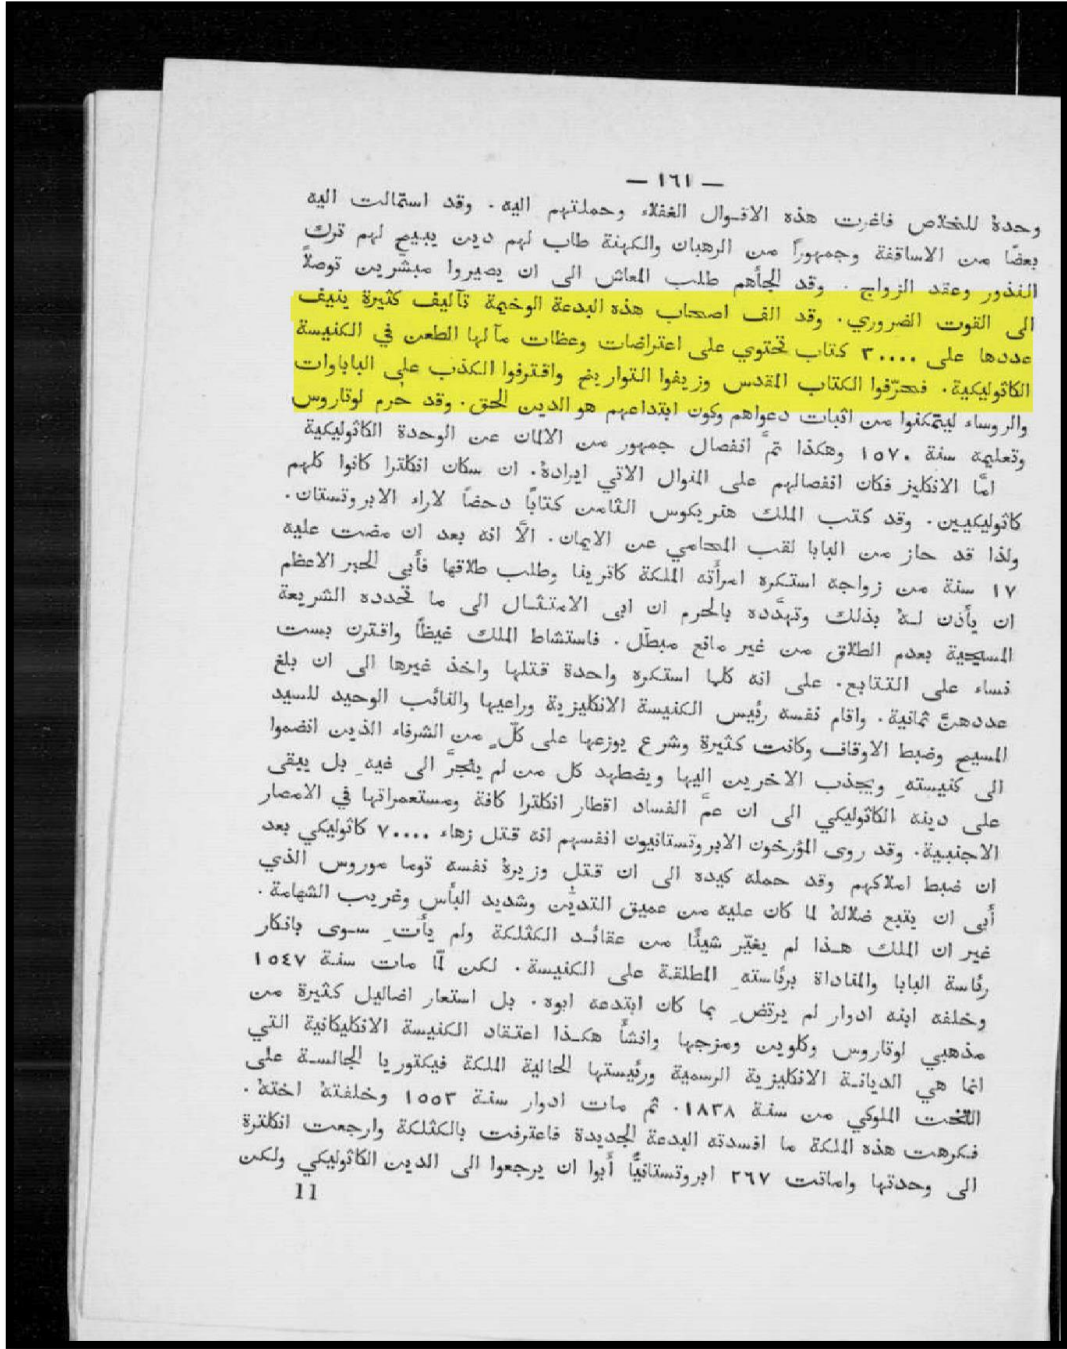 — ١٦١ —
وحدهُ للخلاص فاغرت هذه الاقوال الغفلاء وحملتهم اليه . وقد استمالت اليه
بعضًا من الاساقفة وجمهورًا من الرهبان والكهنة طاب لهم دين يبيح لهم ترك
النذور وعقد الزواج . وقد الجأهم طلب المعاش الى ان يصيروا مبشرين توصلاً
الى القوت الضروري . وقد الف اصحاب هذه البدعة الوخيمة تآليف كثيرة ينيف
عددها على ٣٠٠٠٠ كتاب تحتوي على اعتراضات وعظات مآلها الطعن في الكنيسة
الكاثوليكية . فحرّفوا الكتاب المقدس وزيفوا التواريخ واقترفوا الكذب على الباباوات
والروساء ليتمكنوا من اثبات دعواهم وكون ابتداعهم هو الدين الحق . وقد حُرم لوتاروس
وتعليمه سنة ١٥٧٠ وهكذا تمَّ انفصال جمهور من الالمان عن الوحدة الكاثوليكية
امَّا الانكليز فكان انفصالهم على المنوال الاتي ايرادهُ . ان سكان انكلترا كانوا كلهم
كاثوليكيين . وقد كتب الملك هنريكوس الثامن كتابًا دحضًا لاراء الابروتستان .
ولذا قد حاز من البابا لقب المحامي عن الايمان . الَّا انه بعد ان مضت عليه
١٧ سنة من زواجه استكره امرأته الملكة كاترينا وطلب طلاقها فأبى الحبر الاعظم
ان يأذن لهُ بذلك وتهدَّده بالحرم ان ابى الامتثال الى ما تحدده الشريعة
المسيحية بعدم الطلاق من غير مانع مبطل . فاستشاط الملك غيظًا واقترن بست
نساء على التتابع . على انه كلما استكره واحدة قتلها واخذ غيرها الى ان بلغ
عددهنَّ ثمانية . واقام نفسه رئيس الكنيسة الانكليزية وراعيها والنائب الوحيد للسيد
المسيح وضبط الاوقاف وكانت كثيرة وشرع يوزعها على كلٍّ من الشرفاء الذين انضموا
الى كنيستهِ ويجذب الاخرين اليها ويضطهد كل من لم ينجرَّ الى غيهِ بل يبقى
على دينه الكاثوليكي الى ان عمَّ الفساد اقطار انكلترا كافة ومستعمراتها في الامصار
الاجنبية . وقد روى المؤرخون الابروتستانيون انفسهم انه قتل زهاء ٧٠٠٠٠ كاثوليكي بعد
ان ضبط املاكهم وقد حمله كيده الى ان قتل وزيرهُ نفسه توما موروس الذي
أبى ان يتبع ضلالهُ لما كان عليه من عميق التديُّن وشديد البأس وغريب الشهامة .
غير ان الملك هذا لم يغيّر شيئًا من عقائد الكثلكة ولم يأتِ سوى بانكار
رئاسة البابا والمناداة برئاستهِ المطلقة على الكنيسة . لكن لمّا مات سنة ١٥٤٧
وخلفه ابنه ادوار لم يرتضِ بما كان ابتدعه ابوه . بل استعار اضاليل كثيرة من
مذهبي لوتاروس وكلوين ومزجها وانشأ هكذا اعتقاد الكنيسة الانكليكانية التي
انما هي الديانة الانكليزية الرسمية ورئيستها الحالية الملكة فيكتوريا الجالسة على
التخت الملوكي من سنة ١٨٣٨ . ثم مات ادوار سنة ١٥٥٣ وخلفتهُ اختهُ .
فكرهت هذه الملكة ما افسدته البدعة الجديدة فاعترفت بالكثلكة وارجعت انكلترة
الى وحدتها واماتت ٢٦٧ ابروتستانيًّا أبوا ان يرجعوا الى الدين الكاثوليكي ولكن
11